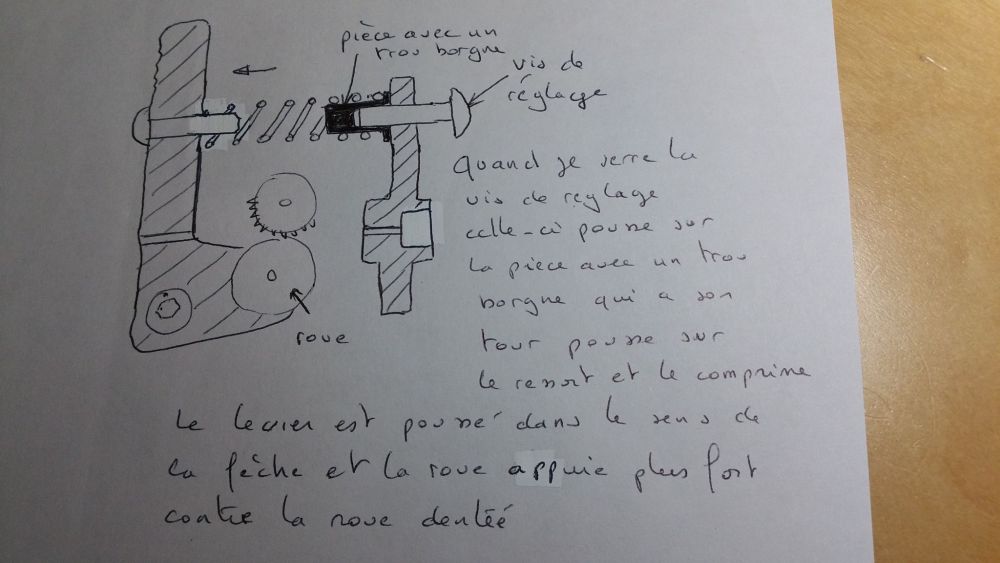 pièce avec un
trou borgne
vis de
réglage
quand je serre la
vis de reglage
celle-ci pousse sur
la pièce avec un trou
borgne qui a son
tour pousse sur
le ressort et le comprime
roue
Le levier est poussé dans le sens de
la flèche et la roue appuie plus fort
contre la roue dentéé